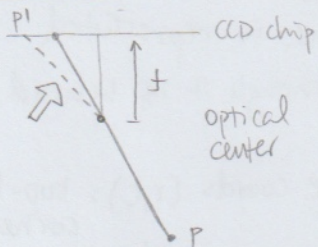 P'
CCD chip
f
optical
center
P